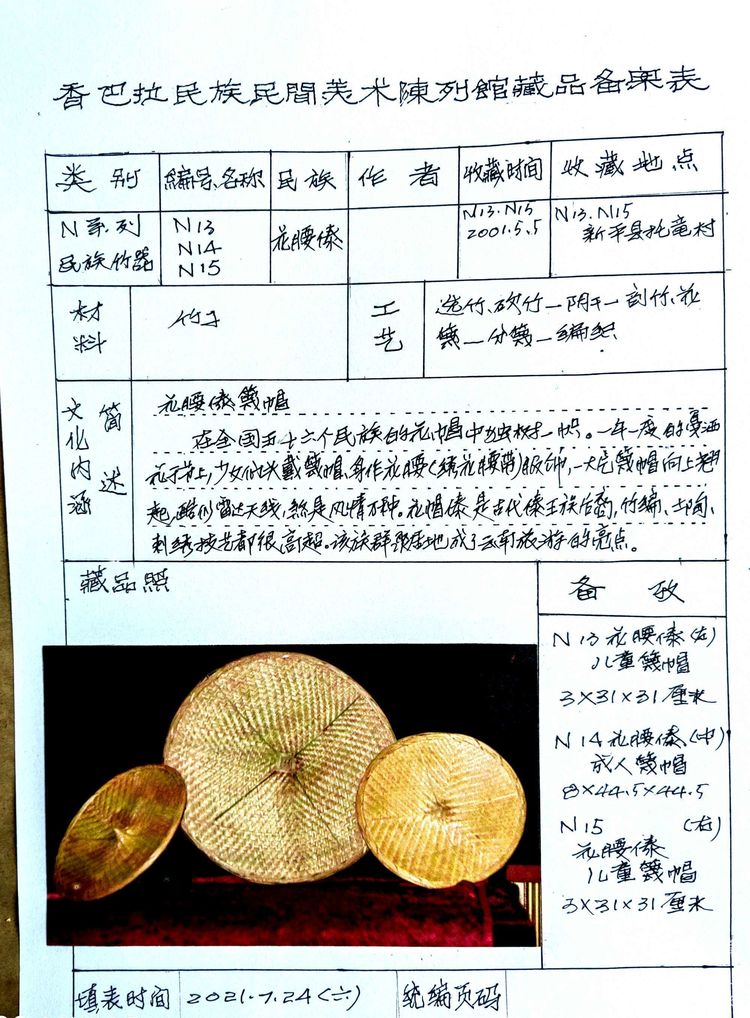 香巴拉民族民間美术陳列館藏品备案表
类别 编号、名称 民族 作者 收藏时间 收藏地点
N系列
民族竹器
N13
N14
N15
花腰傣
N13.N15
2001.5.5
N13.N15
新平县托竜村
材料
竹子
工艺
选竹、砍竹—阴干—剖竹、花
篾—分篾—编织
文化内涵 简述
花腰傣篾帽
在全国五十六个民族的花帽中独树一帜。一年一度的
花街节上,少女们头戴篾帽,身作花腰(绣花腰带)服饰,一大片篾帽向上翘
起,酷似雷达天线,煞是风情万种。花帽傣是古代傣王族后裔,竹编、土陶、
刺绣技艺都很高超。该族群聚居地成了云南旅游的亮点。
藏品照
备攷
N13花腰傣(左)
儿童篾帽
3×31×31厘米
N14花腰傣(中)
成人篾帽
8×44.5×44.5
N15 (右)
花腰傣
儿童篾帽
3×31×31厘米
填表时间 2021.7.24(六) 统编页码